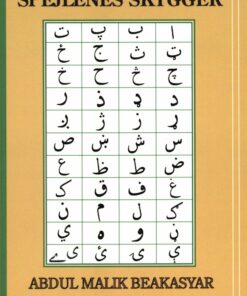 SPEJLENES SKYGGER
ا ب پ ت
ټ ث ج ځ
چ څ ح خ
د ډ ذ ر
ړ ز ژ ږ
س ش ښ ص
ض ط ظ ع
غ ف ق ک
ګ ل م ن
ڼ و ه ي
ABDUL MALIK BEAKASYAR